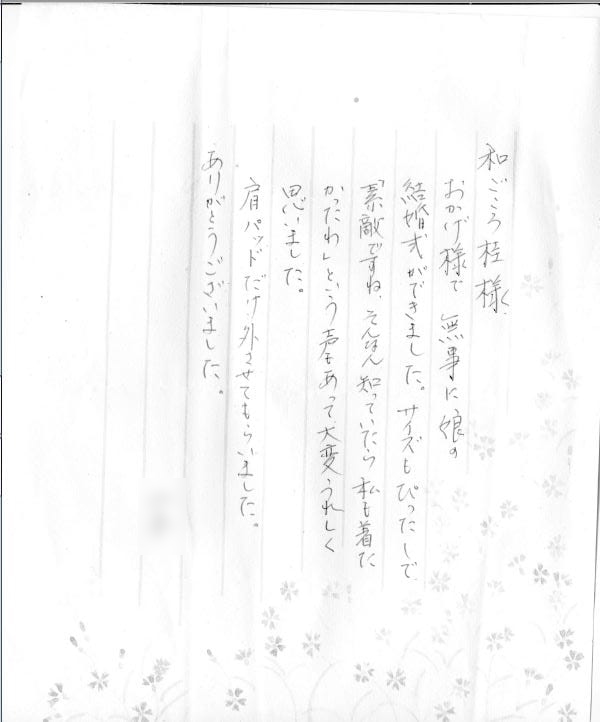 和ごころ桂様
おかげ様で 無事に娘の
結婚式ができました。サイズもぴったしで
「素敵ですね、そんなん知っていたら 私も着た
かったわ」という声もあって大変うれしく
思いました。
肩パッドだけ外させてもらいました。
ありがとうございました。